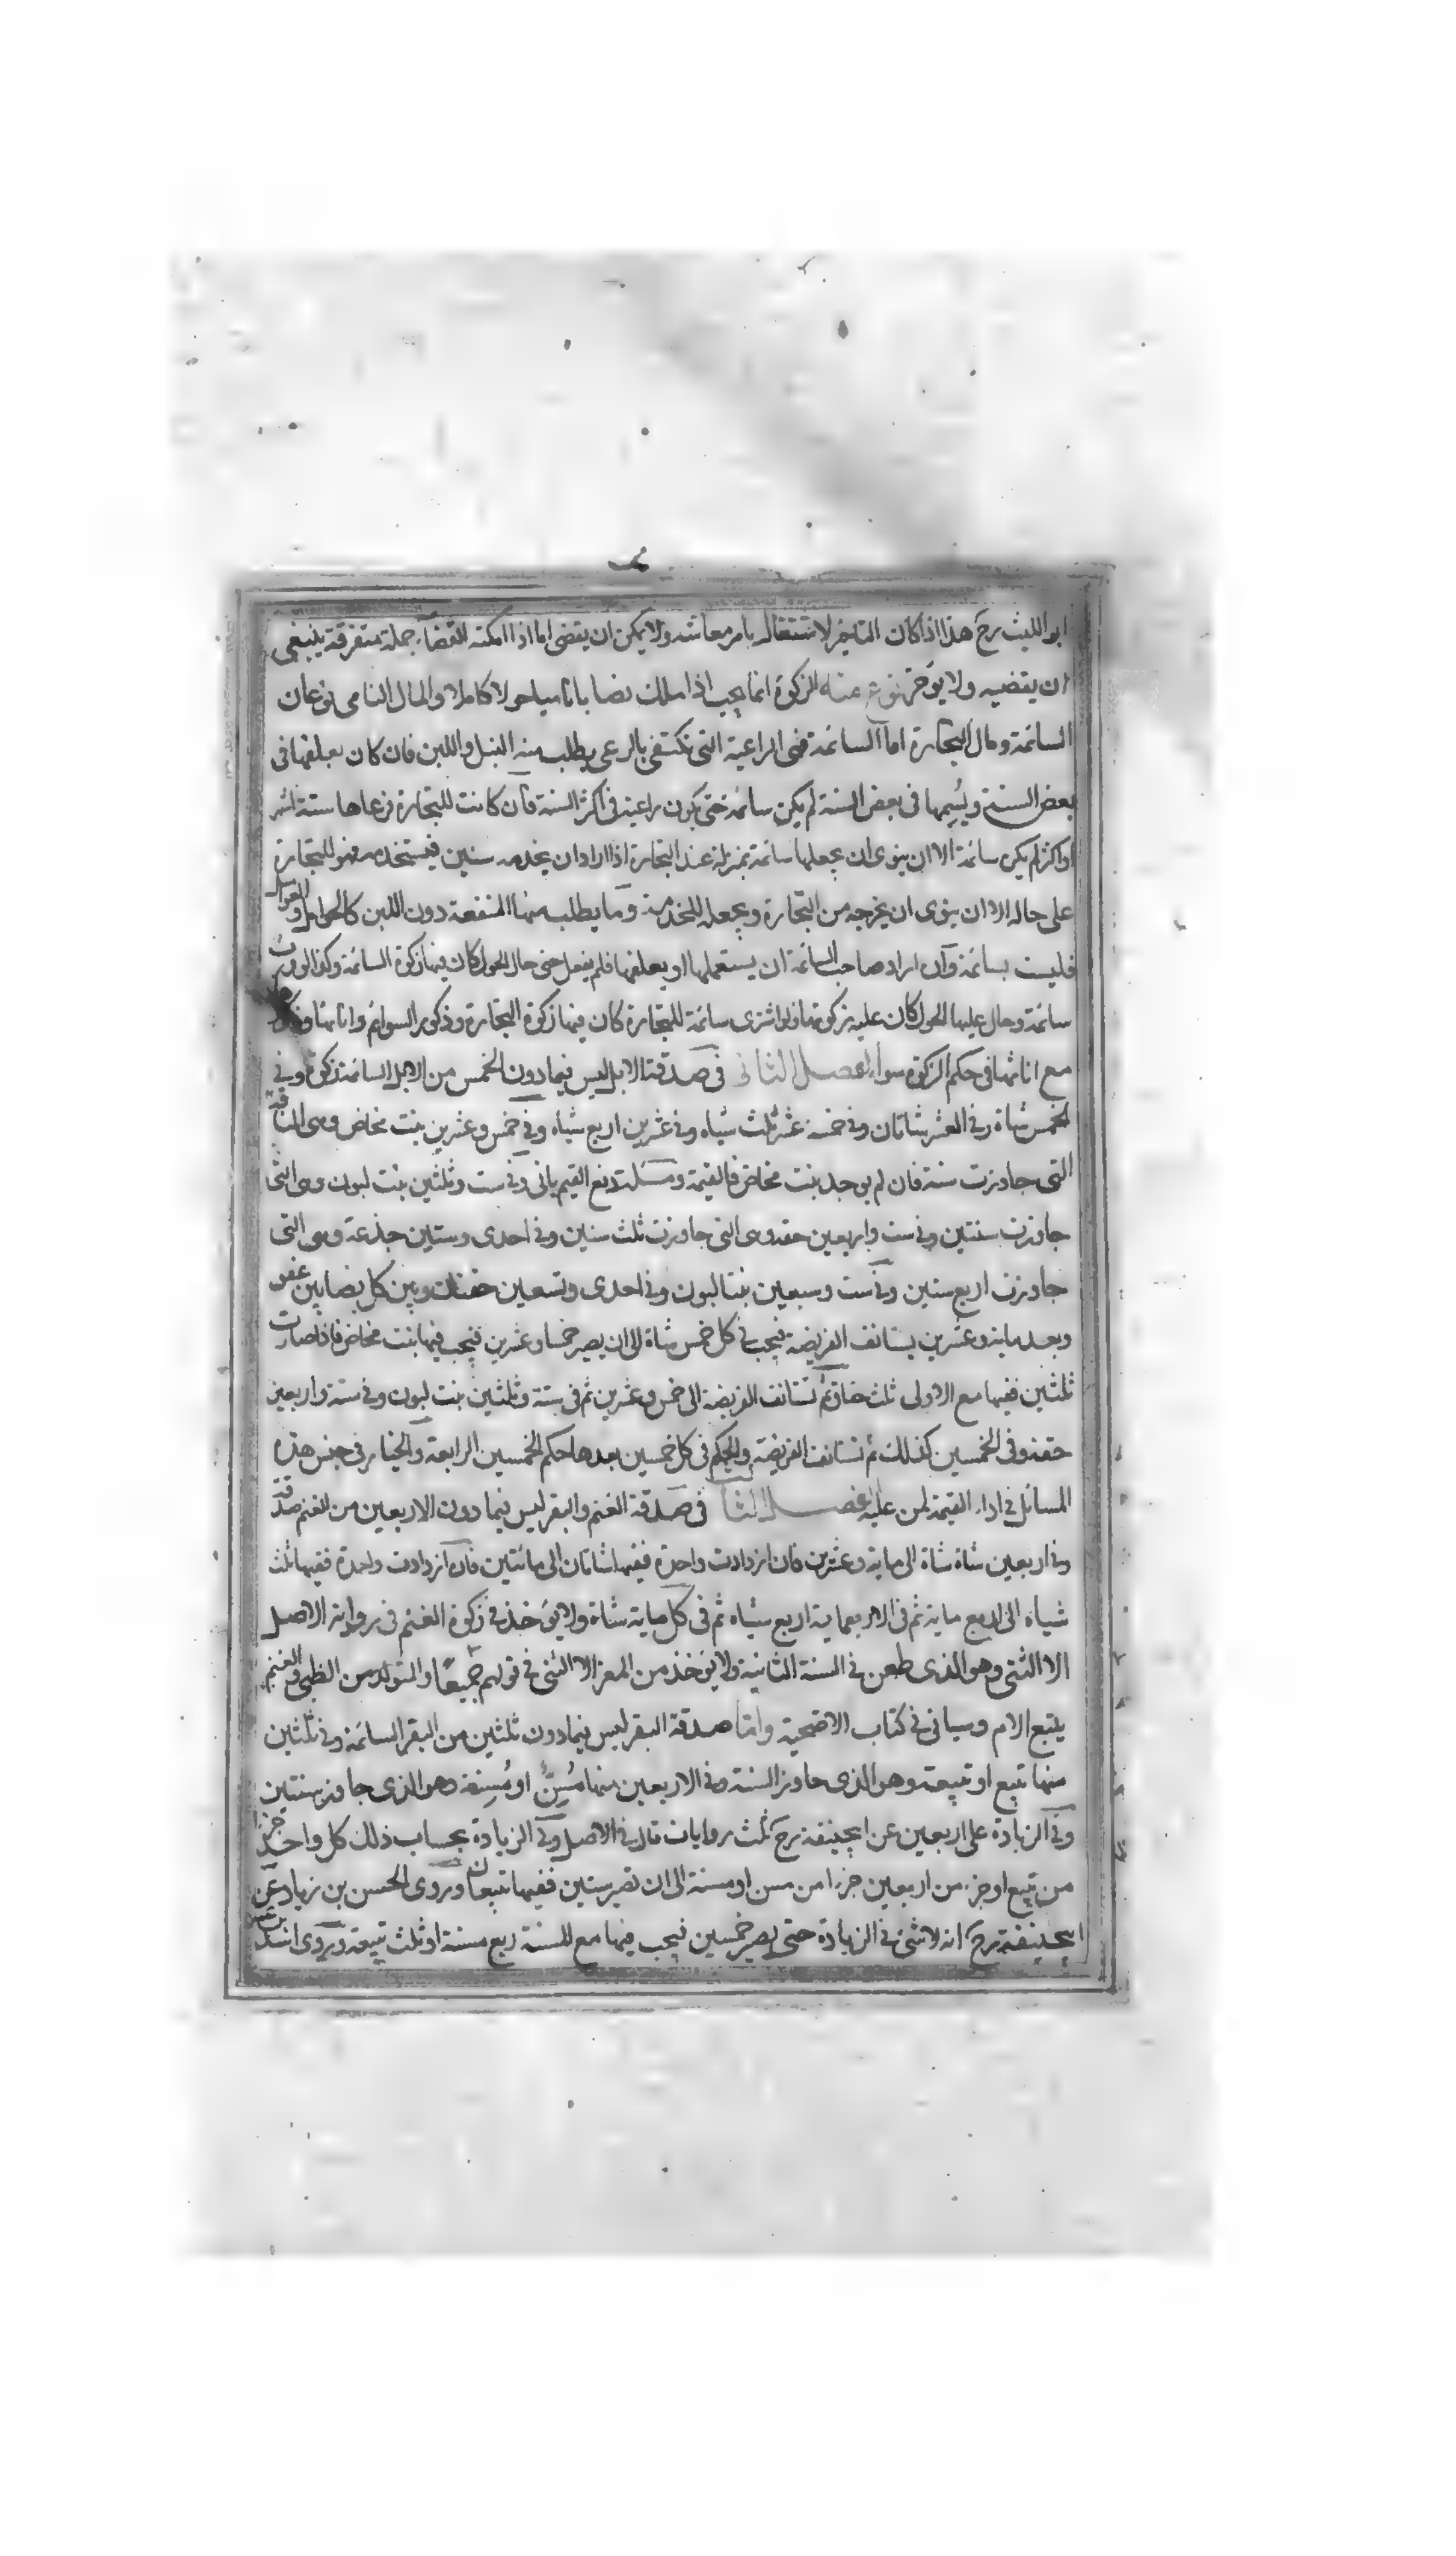 ابو الليث رح هذا اذا كان التاخير لاشتغاله بامر معاشه ولا يمكن ان يقضى اما اذا امكنه القضاء جملة متفرقة ينبغى
ان يقضيه ولا يؤخر نوع منه الزكوة انما يجب اذا ملك نصابا ناميا حولا كاملا والمال النامى نوعان
السائمة ومال التجارة اما السائمة فهى الراعية التى تكتفى بالرعى يطلب منه النسل واللبن فان كان يعلفها فى
بعض السنة ويسيمها فى بعض السنة لم يكن سائمة حتى يكون راعية فى اكثر السنة فان كانت للتجارة فرعاها ستة اشهر
او اكثر لم يكن سائمة الا ان ينوى ان يجعلها سائمة بمنزلة عند التجارة اذا اراد ان يخدمه سنين فيستخدمه فهو للتجارة
على حاله الا ان ينوى ان يخرجه من التجارة ويجعله للخدمة وما يطلب منها المنفعة دون اللبن كالحوامل والعوامل
فليست بسائمة وان اراد صاحب السائمة ان يستعملها او يعلفها فلم يفعل حتى حال الحول كان فيها زكوة السائمة وكذا لو ورث
سائمة وحال عليها الحول كان عليه زكوتها ولو اشترى سائمة للتجارة كان فيها زكوة التجارة وذكور السوائم واناثها
مع اناثها فى حكم الزكوة سواء الفصل الثانى فى صدقة الابل ليس فيما دون الخمس من الابل السائمة زكوة وفى
الخمس شاة وفى العشر شاتان وفى خمسة عشر ثلث شياه وفى عشرين اربع شياه وفى خمس وعشرين بنت مخاض وهى الناقة
التى جاوزت سنة فان لم يوجد بنت مخاض فالقيمة ومسئلة دفع القيم ياتى وفى ست وثلثين بنت لبون وهى التى
جاوزت سنتين وفى ست واربعين حقه وهى التى جاوزت ثلث سنين وفى احدى وستين جذعة وهى التى
جاوزت اربع سنين وفى ست وسبعين بنتا لبون وفى احدى وتسعين حقتان وبين كل نصابين عفو
وبعد ماية وعشرين يستانف الفريضة فيجب فى كل خمس شاة الى ان يصير خمسا وعشرين فيجب فيها بنت مخاض فاذا صارت
ثلثين ففيها مع الاولى ثلث حقاق ثم تستانف الفريضة الى خمس وعشرين ثم فى ستة وثلثين بنت لبون وفى ستة واربعين
حقه وفى الخمسين كذلك ثم تستانف الفريضة والحكم فى كل خمسين بعدها حكم الخمسين الرابعة والخيار فى جنس هذه
المسائل فى اداء القيمة لمن عليه الفصل الثالث فى صدقة الغنم والبقر ليس فيما دون الاربعين من الغنم صدقة
وفى اربعين شاة شاة الى ماية وعشرين فان ازدادت واحدة ففيها شاتان الى مائتين فان ازدادت واحدة ففيها ثلث
شياه الى اربع ماية ثم فى الاربعماية اربع شياه ثم فى كل ماية شاة ولا يؤخذ فى زكوة الغنم فى رواية الاصل
الا الثنى وهو الذى طعن فى السنة الثانية ولا يؤخذ من المعز الا الثنى فى قولهم جميعا والمتولد من الظبى والغنم
يتبع الام وسياتى فى كتاب الاضحية واما صدقة البقر ليس فيما دون ثلثين من البقر السائمة وفى ثلثين
منها تبيع او تبيعة وهو الذى جاوز السنة وفى الاربعين منها مسن او مسنة وهو الذى جاوز سنتين
وفى الزيادة على اربعين عن ابيحنيفة رح ثلث روايات قال فى الاصل وفى الزيادة بحساب ذلك كل واحد جزءا
من تبيع او جزء من اربعين جزءا من مسن او مسنة الى ان تصير ستين ففيها تبيعان وروى الحسن بن زياد عن
ابيحنيفة رح انه لا شئ فى الزيادة حتى يصير خمسين فيجب فيها مع المسنة ربع مسنة او ثلث تبيعة وروى اسد بن عمرو